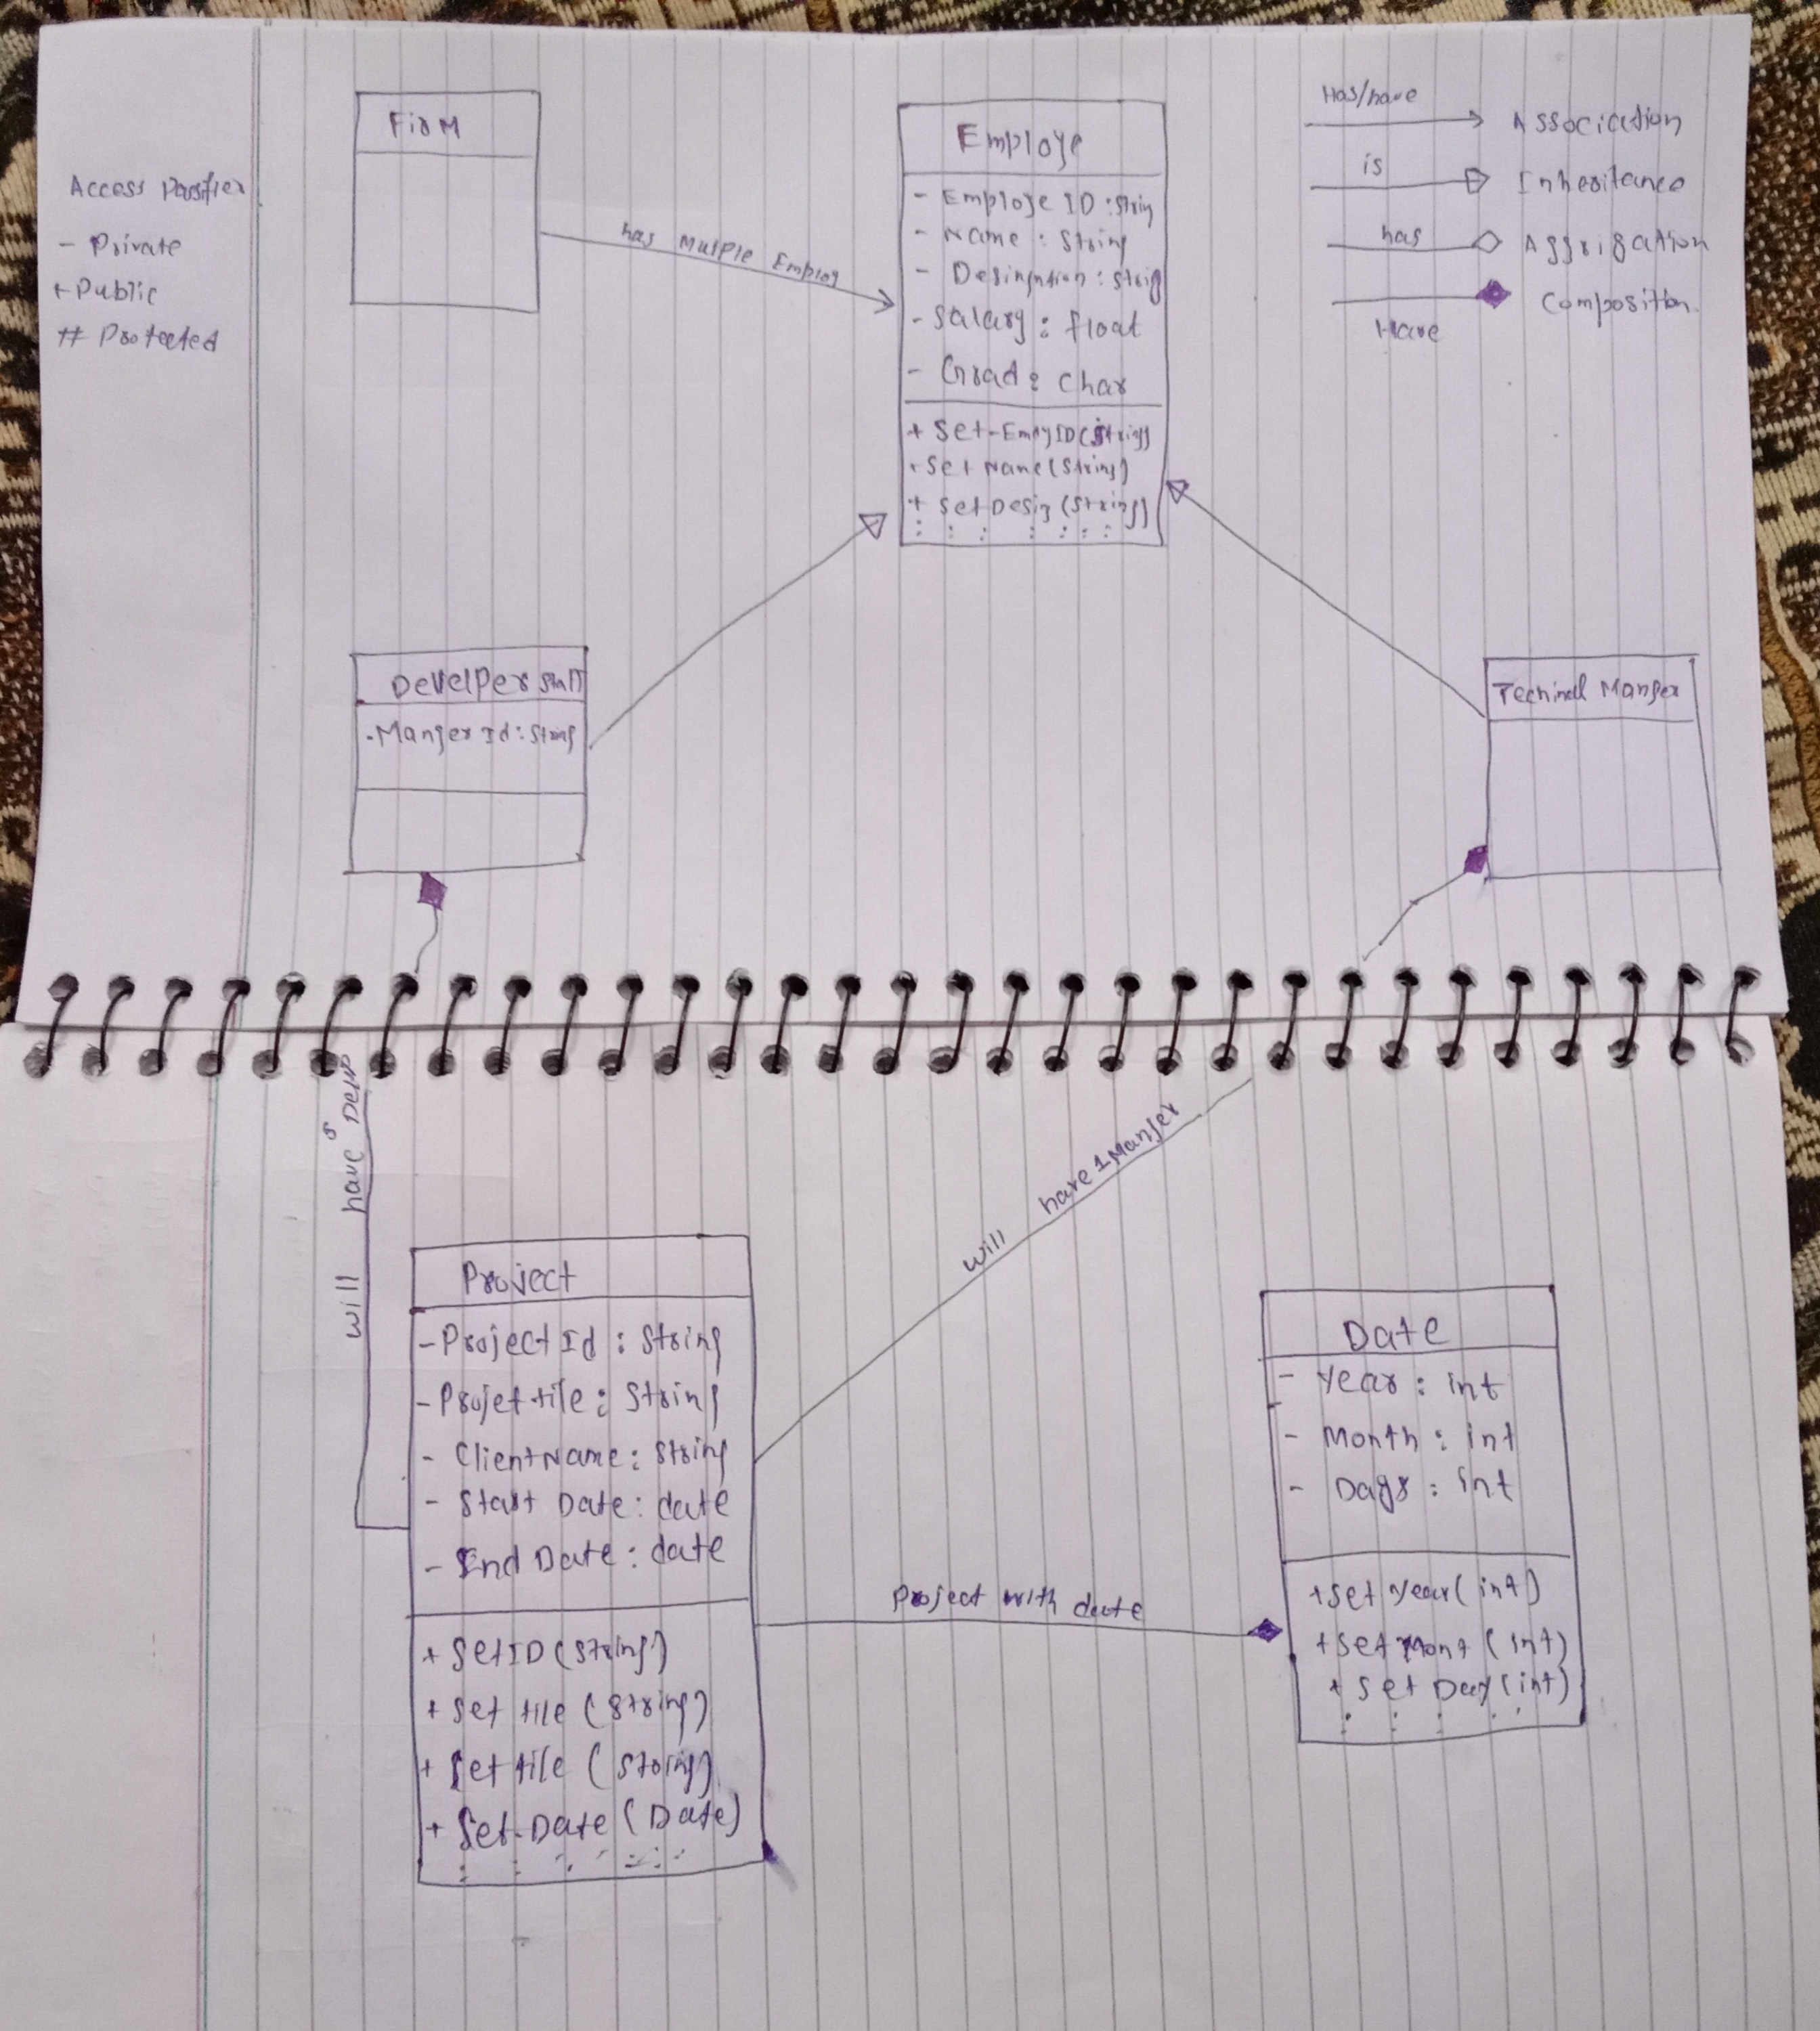 FirM
Access
- Private
+ Public
# Protected
has Multple Employ
Employe
- Employe ID : String
- Name : String
- Designation : String
- Salary : float
- Grad : Char
+ Set-EmpyID (String)
+ Set Name (String)
+ Set Desig (String)
Has/have
Association
is
Inheritance
has
Aggrigation
Have
Composition.
Develper staff
- Manger Id : String
Techinal Manger
will have 5 Devp
will have 1 Manger
Project
- Project Id : String
- Projet tile : String
- Client Name : String
- Start Date : date
- End Date : date
+ SetID (String)
+ Set tile (String)
+ Set tile (String)
+ Set-Date (Date)
Project with date
Date
- Year : int
- Month : int
- Days : int
+ Set Year (int)
+ Set Mont (int)
+ Set Day (int)